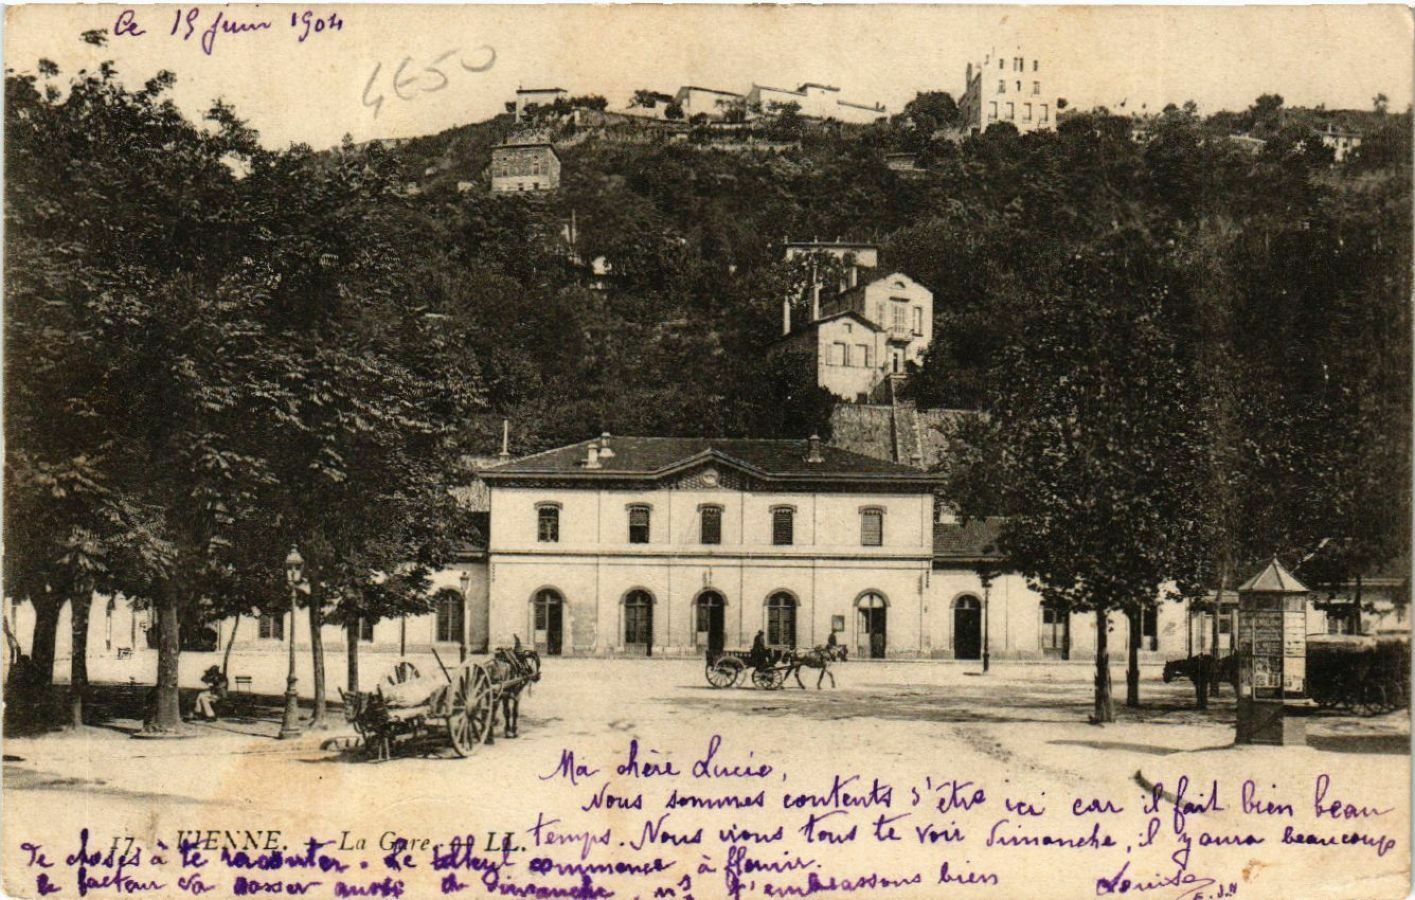 Ce 15 juin 1904
4E50
Ma chère Lucie,
Nous sommes contents d'être ici car il fait bien beau
temps. Nous irons tous te voir dimanche, il y aura beaucoup
17. VIENNE. - La Gare. LL.
de choses à te raconter. Le commence à fleurir.
le facteur va passer dimanche, ns t'embrassons bien
Louise